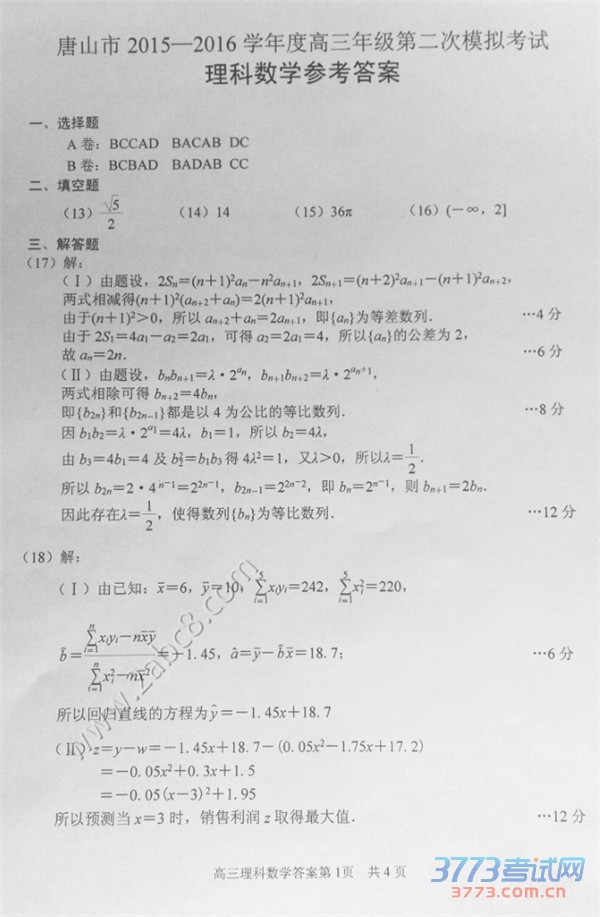 唐山市 2015—2016 学年度高三年级第二次模拟考试
理科数学参考答案
一、选择题
A 卷：BCCAD BACAB DC
B 卷：BCBAD BADAB CC
二、填空题
（13）√5/2 （14）14 （15）36π （16）(－∞，2]
三、解答题
（17）解：
（Ⅰ）由题设，2Sₙ＝(n＋1)²aₙ－n²aₙ₊₁，2Sₙ₊₁＝(n＋2)²aₙ₊₁－(n＋1)²aₙ₊₂，
两式相减得(n＋1)²(aₙ₊₂＋aₙ)＝2(n＋1)²aₙ₊₁，
由于(n＋1)²＞0，所以 aₙ₊₂＋aₙ＝2aₙ₊₁，即{aₙ}为等差数列． …4 分
由于 2S₁＝4a₁－a₂＝2a₁，可得 a₂＝2a₁＝4，所以{aₙ}的公差为 2，
故 aₙ＝2n． …6 分
（Ⅱ）由题设，bₙbₙ₊₁＝λ·2^{aₙ}，bₙ₊₁bₙ₊₂＝λ·2^{aₙ₊₁}，
两式相除可得 bₙ₊₂＝4bₙ，
即{b₂ₙ}和{b₂ₙ₋₁}都是以 4 为公比的等比数列． …8 分
因 b₁b₂＝λ·2^{a₁}＝4λ，b₁＝1，所以 b₂＝4λ，
由 b₃＝4b₁＝4 及 b₂²＝b₁b₃ 得 4λ²＝1，又λ＞0，所以λ＝1/2．
所以 b₂ₙ＝2·4ⁿ⁻¹＝2²ⁿ⁻¹，b₂ₙ₋₁＝2²ⁿ⁻²，即 bₙ＝2ⁿ⁻¹，则 bₙ₊₁＝2bₙ．
因此存在λ＝1/2，使得数列{bₙ}为等比数列． …12 分
（18）解：
（Ⅰ）由已知：x̄＝6，ȳ＝10，∑_{i=1}^{5}xᵢyᵢ＝242，∑_{i=1}^{5}xᵢ²＝220，
b̂＝(∑_{i=1}^{n}xᵢyᵢ－nx̄ȳ)/(∑_{i=1}^{n}xᵢ²－nx̄²)＝－1.45，â＝ȳ－b̂x̄＝18.7； …6 分
所以回归直线的方程为 ŷ＝－1.45x＋18.7
（Ⅱ）z＝y－w＝－1.45x＋18.7－(0.05x²－1.75x＋17.2)
＝－0.05x²＋0.3x＋1.5
＝－0.05(x－3)²＋1.95
所以预测当 x＝3 时，销售利润 z 取得最大值． …12 分
高三理科数学答案第1页 共 4 页
www.2abc8.com
3773考试网
3773.com.cn